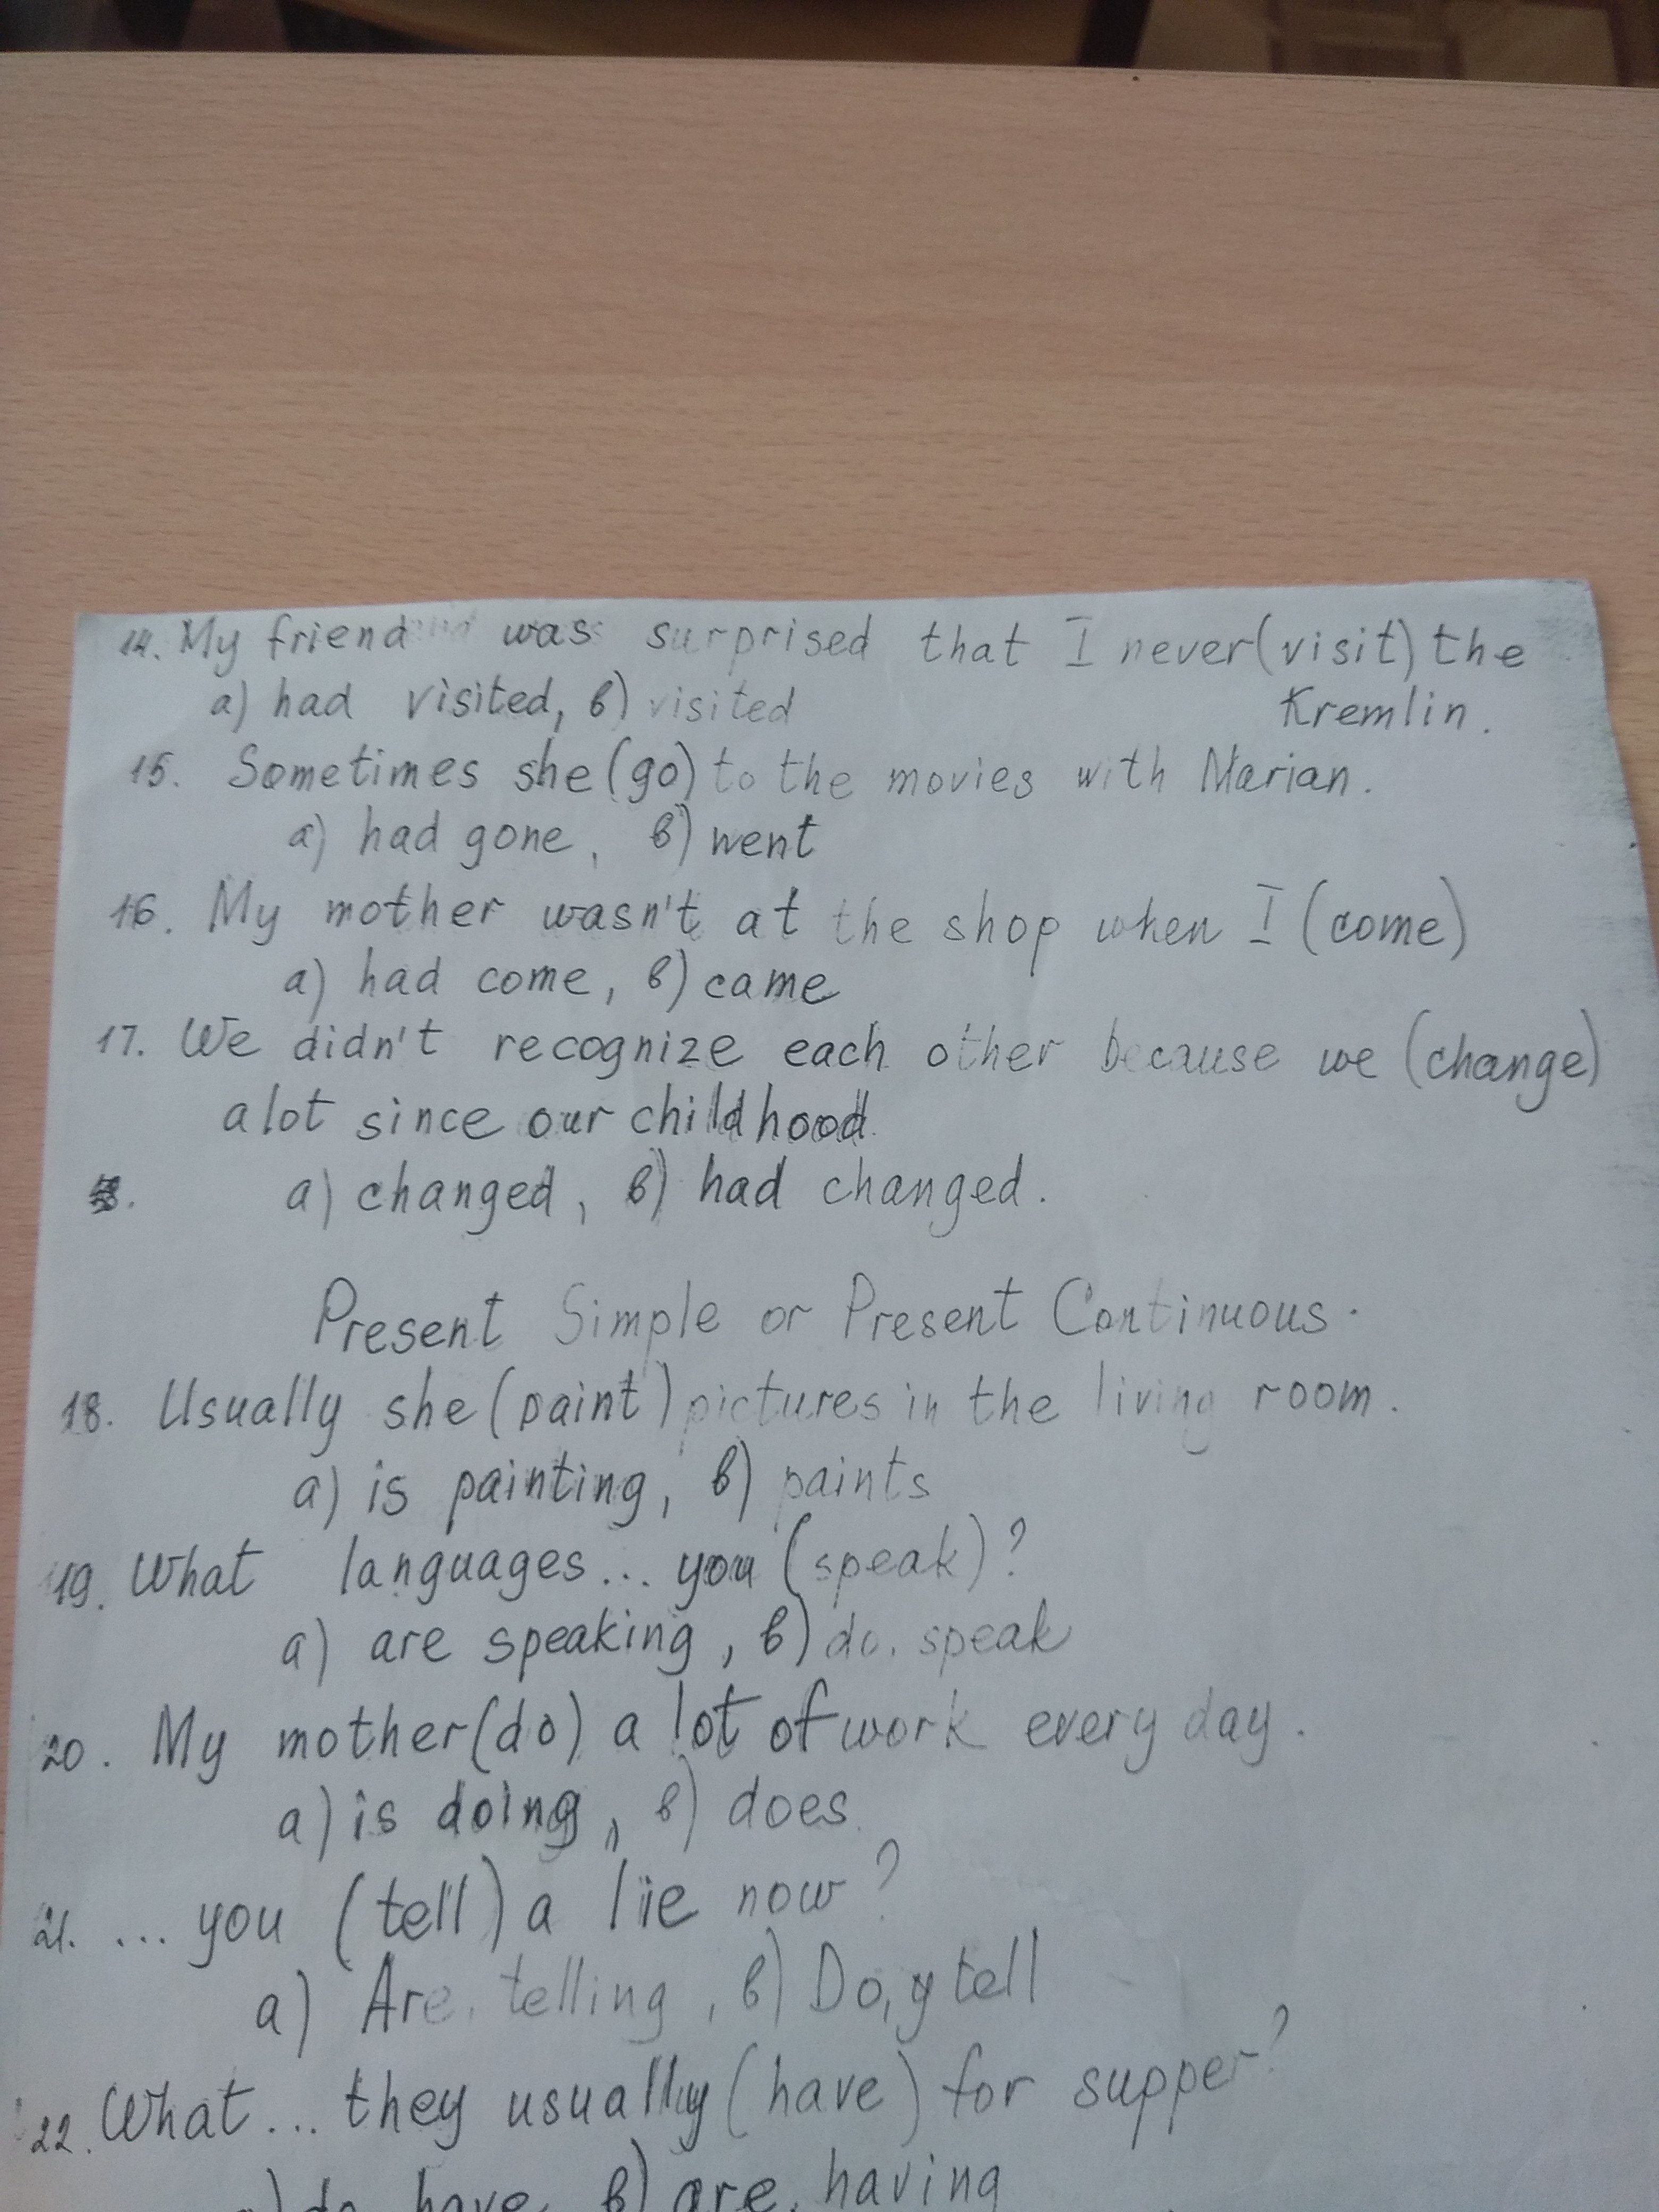 14. My friend was surprised that I never (visit) the
a) had visited, в) visited Kremlin.
15. Sometimes she (go) to the movies with Marian.
a) had gone, в) went
16. My mother wasn't at the shop when I (come)
a) had come, в) came
17. We didn't recognize each other because we (change)
a lot since our childhood.
a) changed, в) had changed.
Present Simple or Present Continuous.
18. Usually she (paint) pictures in the living room.
a) is painting, в) paints
19. What languages... you (speak)?
a) are speaking, в) do, speak
20. My mother (do) a lot of work every day.
a) is doing, в) does
21. ... you (tell) a lie now?
a) Are, telling, в) Do, y tell
22. What... they usually (have) for supper?
a) do have в) are, having